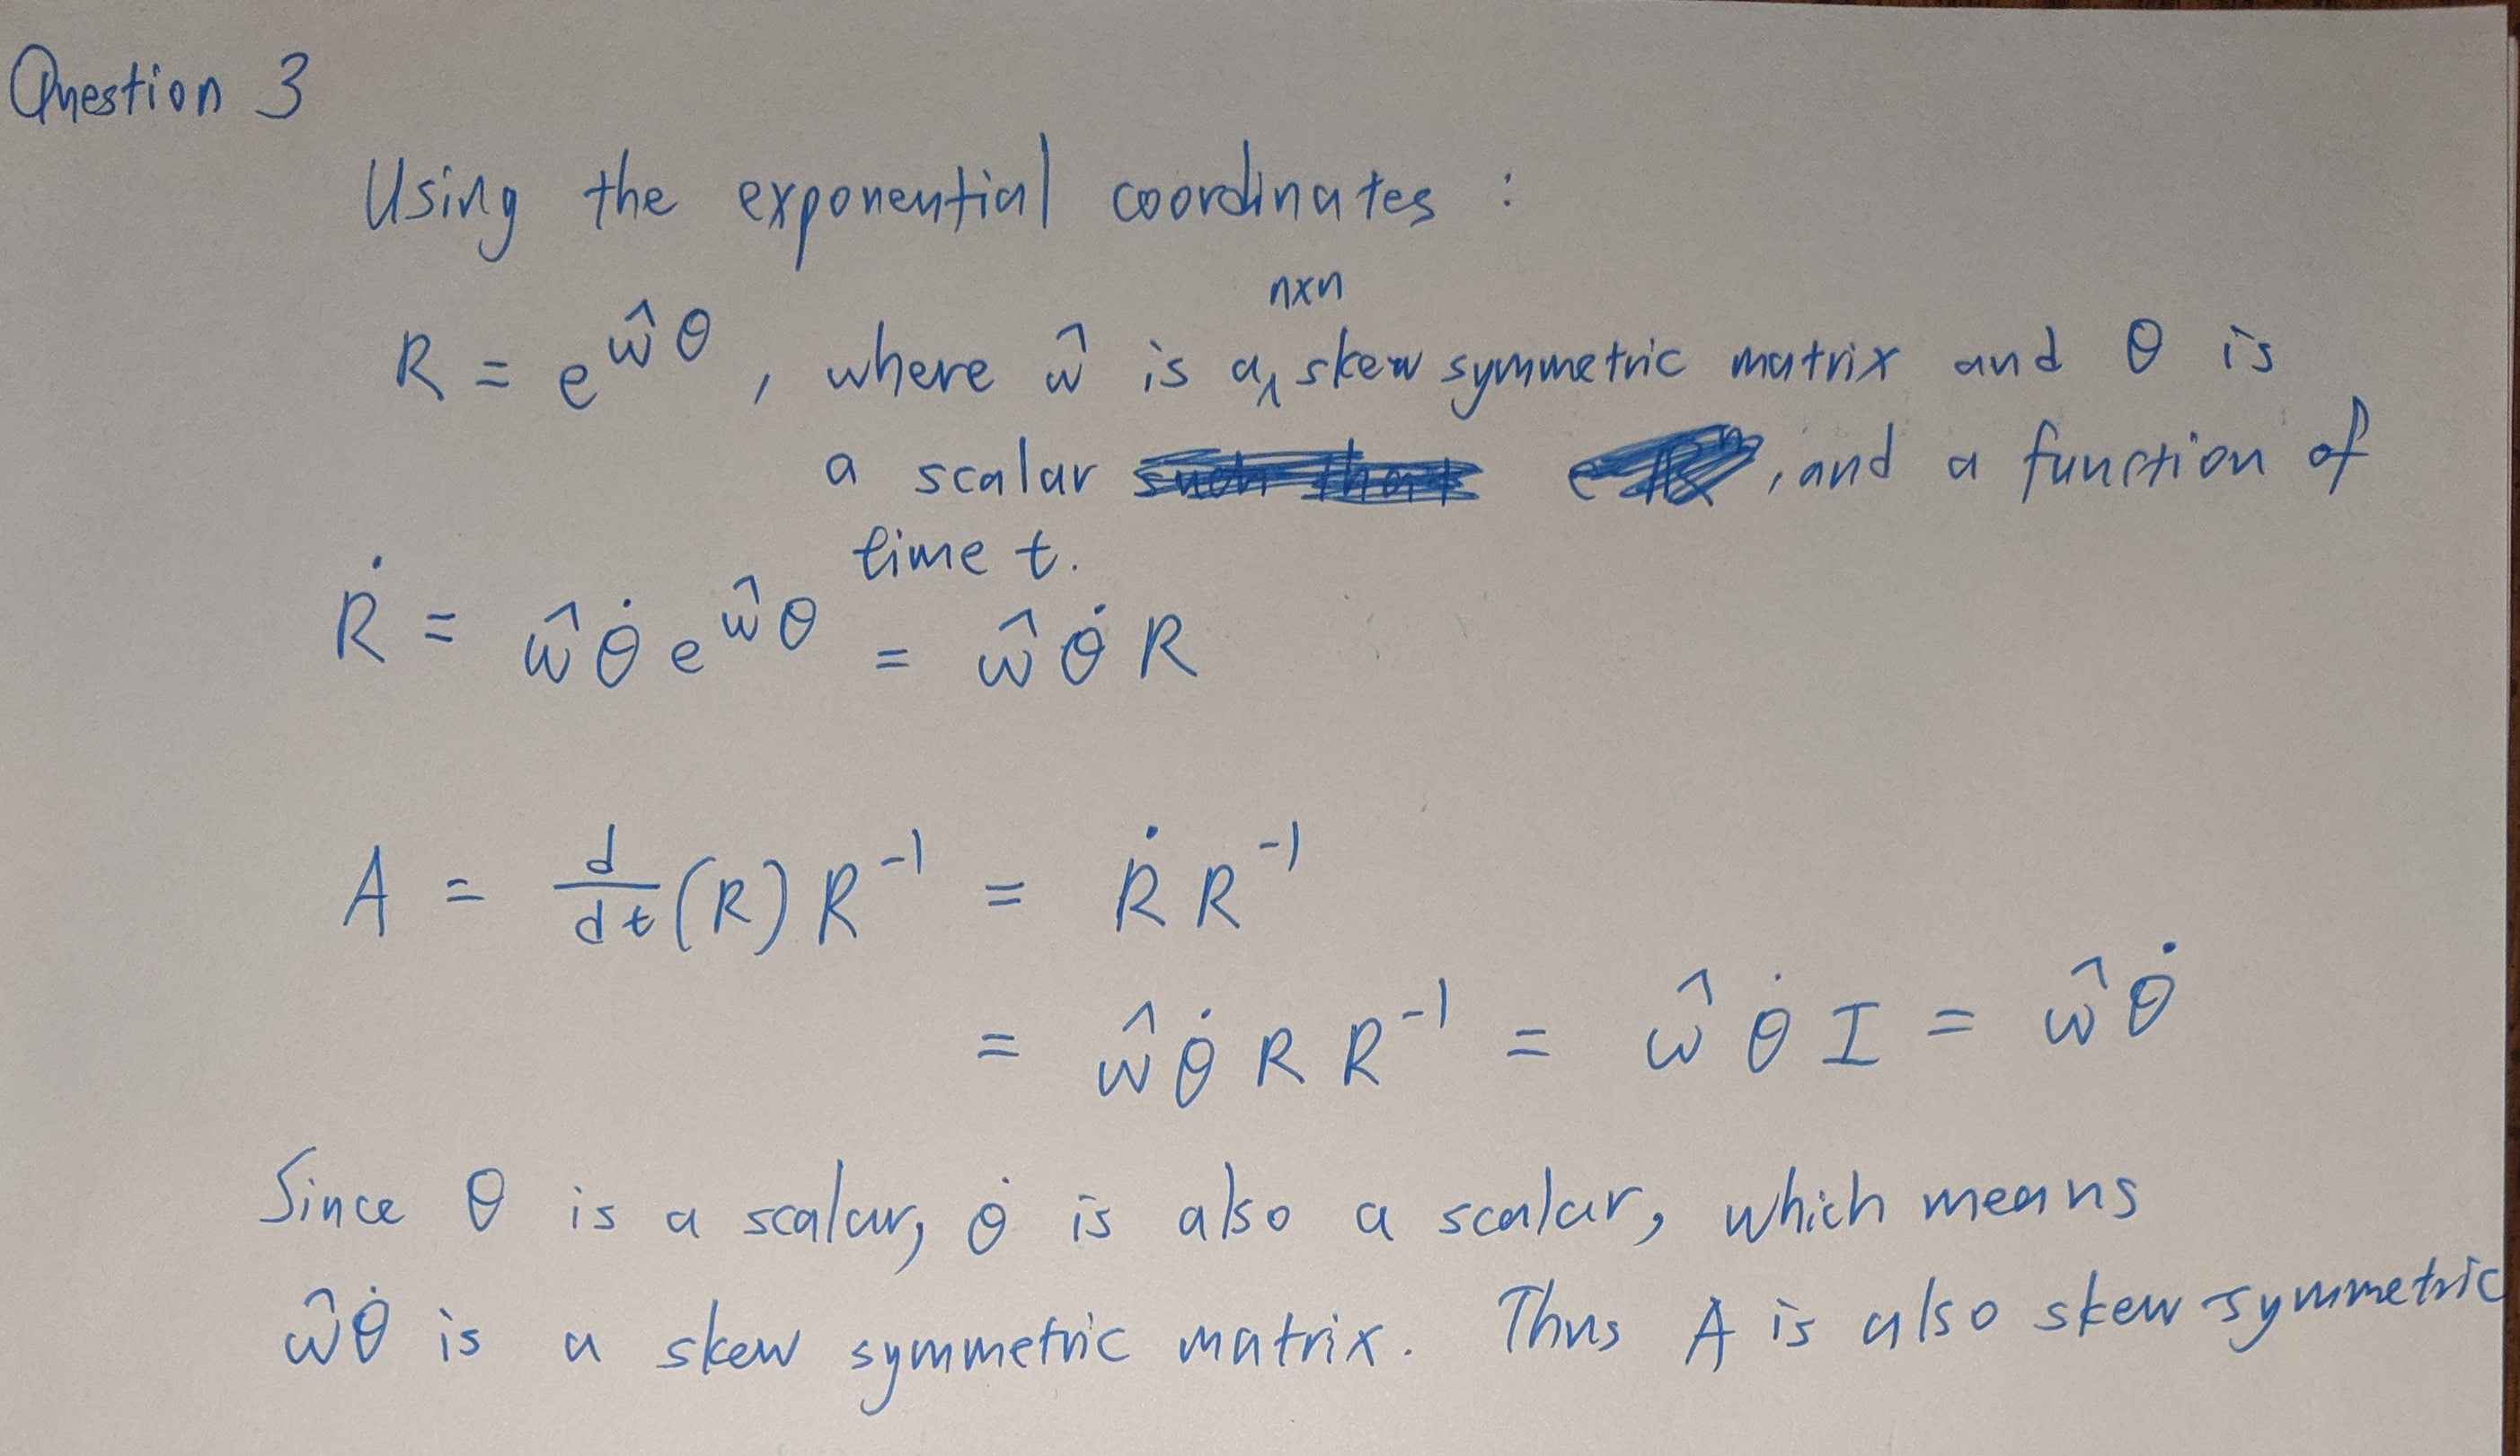 Question 3
Using the exponential coordinates :
R = e^{ŵθ}, where ŵ is a nxn skew symmetric matrix and θ is
a scalar , and a function of
time t.
Ṙ = ŵ θ̇ e^{ŵθ} = ŵ θ̇ R
A = d/dt (R) R⁻¹ = Ṙ R⁻¹
= ŵ θ̇ R R⁻¹ = ŵ θ̇ I = ŵ θ̇
Since θ is a scalar, θ̇ is also a scalar, which means
ŵθ̇ is a skew symmetric matrix. Thus A is also skew symmetric